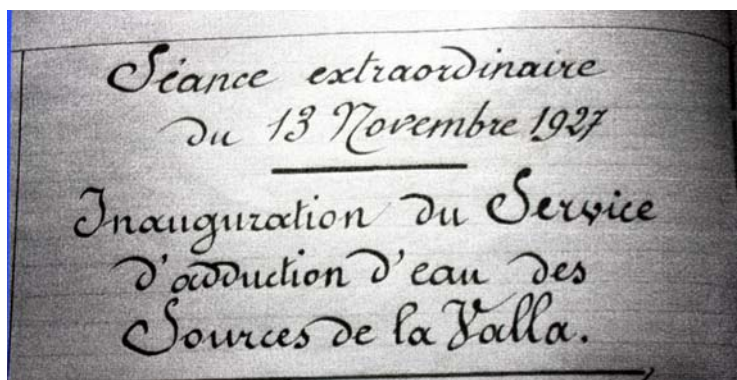 Séance extraordinaire
du 13 Novembre 1927
Inauguration du Service
d'adduction d'eau des
Sources de la Valla.